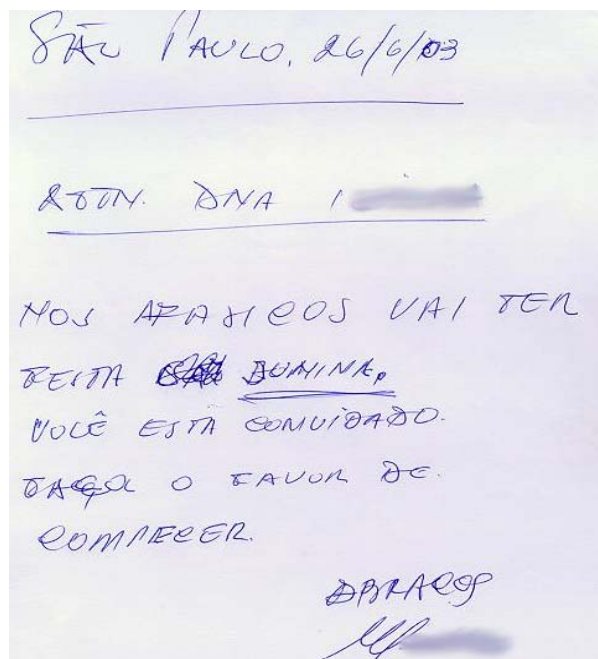 SÃO PAULO, 26/6/03
ATTN. DNA I
NOS AFASICOS VAI TER
FESTA JUNINA,
VOCÊ ESTA CONVIDADO.
FAÇA O FAVOR DE.
COMPECER.
ABRAÇOS